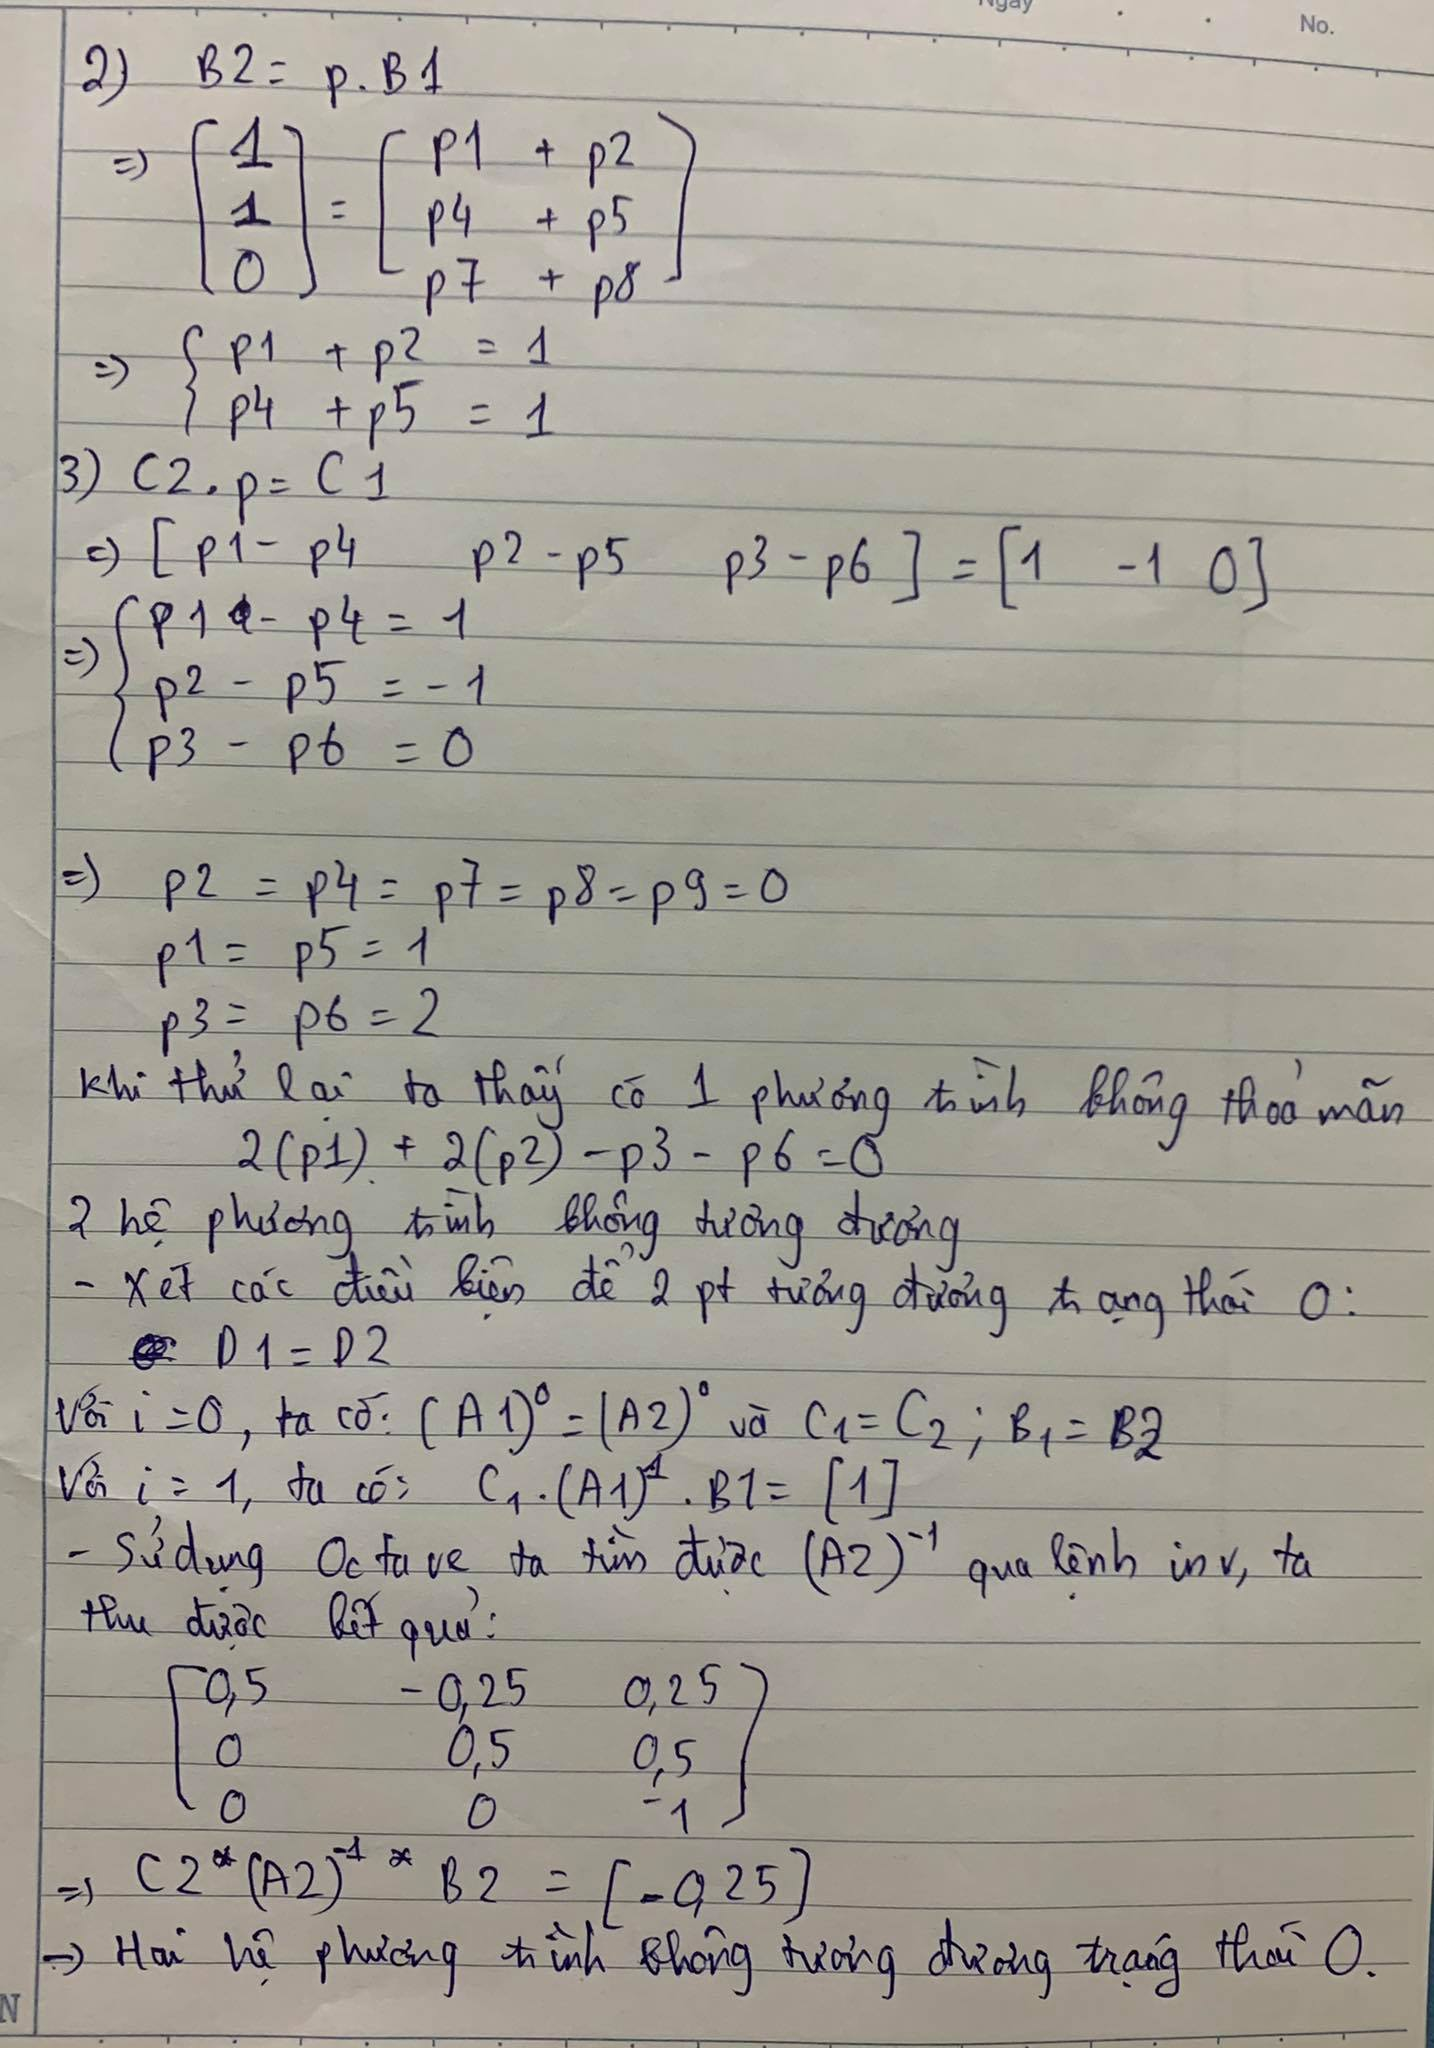 Ngày
No.
2) B2 = p.B1
=> [1 1 0] = [p1 + p2
p4 + p5
p7 + p8]
=> { p1 + p2 = 1
p4 + p5 = 1
3) C2.p = C1
=> [p1 - p4 p2 - p5 p3 - p6] = [1 -1 0]
=> { p1 - p4 = 1
p2 - p5 = -1
p3 - p6 = 0
=> p2 = p4 = p7 = p8 = p9 = 0
p1 = p5 = 1
p3 = p6 = 2
khi thử lại ta thấy có 1 phương trình không thoả mãn
2(p1) + 2(p2) - p3 - p6 = 0
2 hệ phương trình không tương đương
- Xét các điều kiện để 2 pt tương đương trạng thái 0:
D1 = D2
Với i = 0, ta có: (A1)⁰ = (A2)⁰ và C₁ = C₂ ; B₁ = B2
Với i = 1, ta có: C₁.(A1)¹.B1 = [1]
- Sử dụng Octave ta tìm được (A2)⁻¹ qua lệnh inv, ta
thu được kết quả:
[0,5 -0,25 0,25
0 0,5 0,5
0 0 -1]
=> C2*(A2)⁻¹*B2 = [-0,25]
=> Hai hệ phương trình không tương đương trạng thái 0.
N